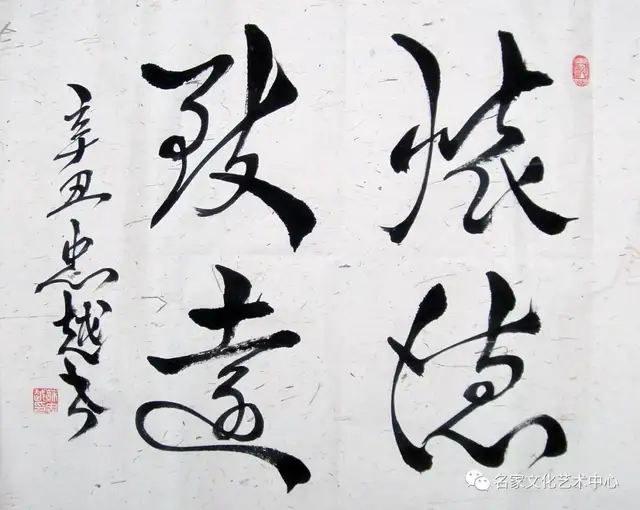 懷德
致遠
辛丑忠越书
名家文化艺术中心